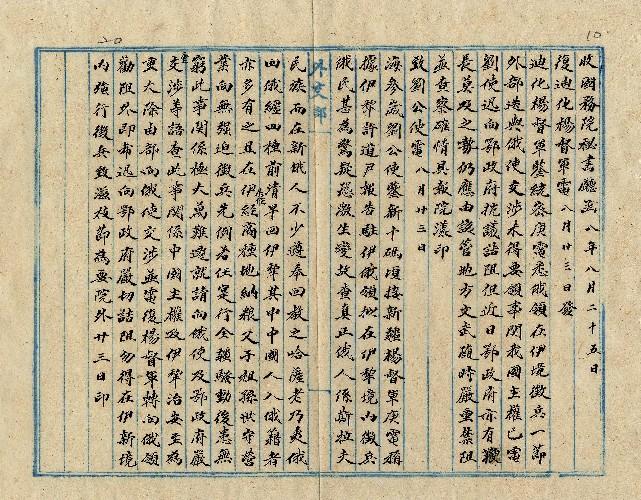 收國務院秘書廳函 八年八月二十五日
復迪化楊督軍電 八月廿三日發
迪化楊督軍鑒統密庚電悉俄領在伊境徵兵一節
外部迭與俄使交涉未得要領事關我國主權已電
劉使迅向鄂政府抗議詰阻但近日鄂政府亦有
長莫及之勢仍應由該管地方文武隨時嚴重禁阻
並查察確情具報院漾印
致劉公使電 八月廿三日
海參崴劉公使鑒新十碼頃接新疆楊督軍庚電稱
據伊犂許道尹報告駐伊俄領擬在伊犂境內徵兵
俄民甚為驚疑恐激生變故查真正俄人係斯拉夫
外交部
民族而在新俄人不少遵奉回教之哈薩老乃夷俄
回俄纏四種前清早回伊犂其中中國人入俄籍者
亦多有之且在伊住經商種地納糧父子祖孫世守營
業向無強迫徵兵先例若任實行全疆騷動後患無
窮此事關係極大萬難遷就請向俄使及鄂政府嚴
重交涉等語查此事關係中國主權及伊犂治安至為
重大除由部向俄使交涉並電復楊督軍轉向俄領
勸阻外即希迅向鄂政府嚴切詰阻勿得在伊新境
內強行徵兵致滋枝節為要院外廿三日印
10
20